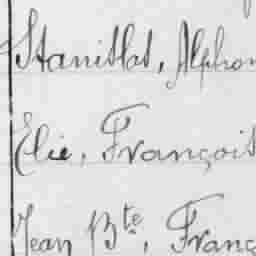 Stanislas, Alphon
Elie, François
Jean Bte, Franç